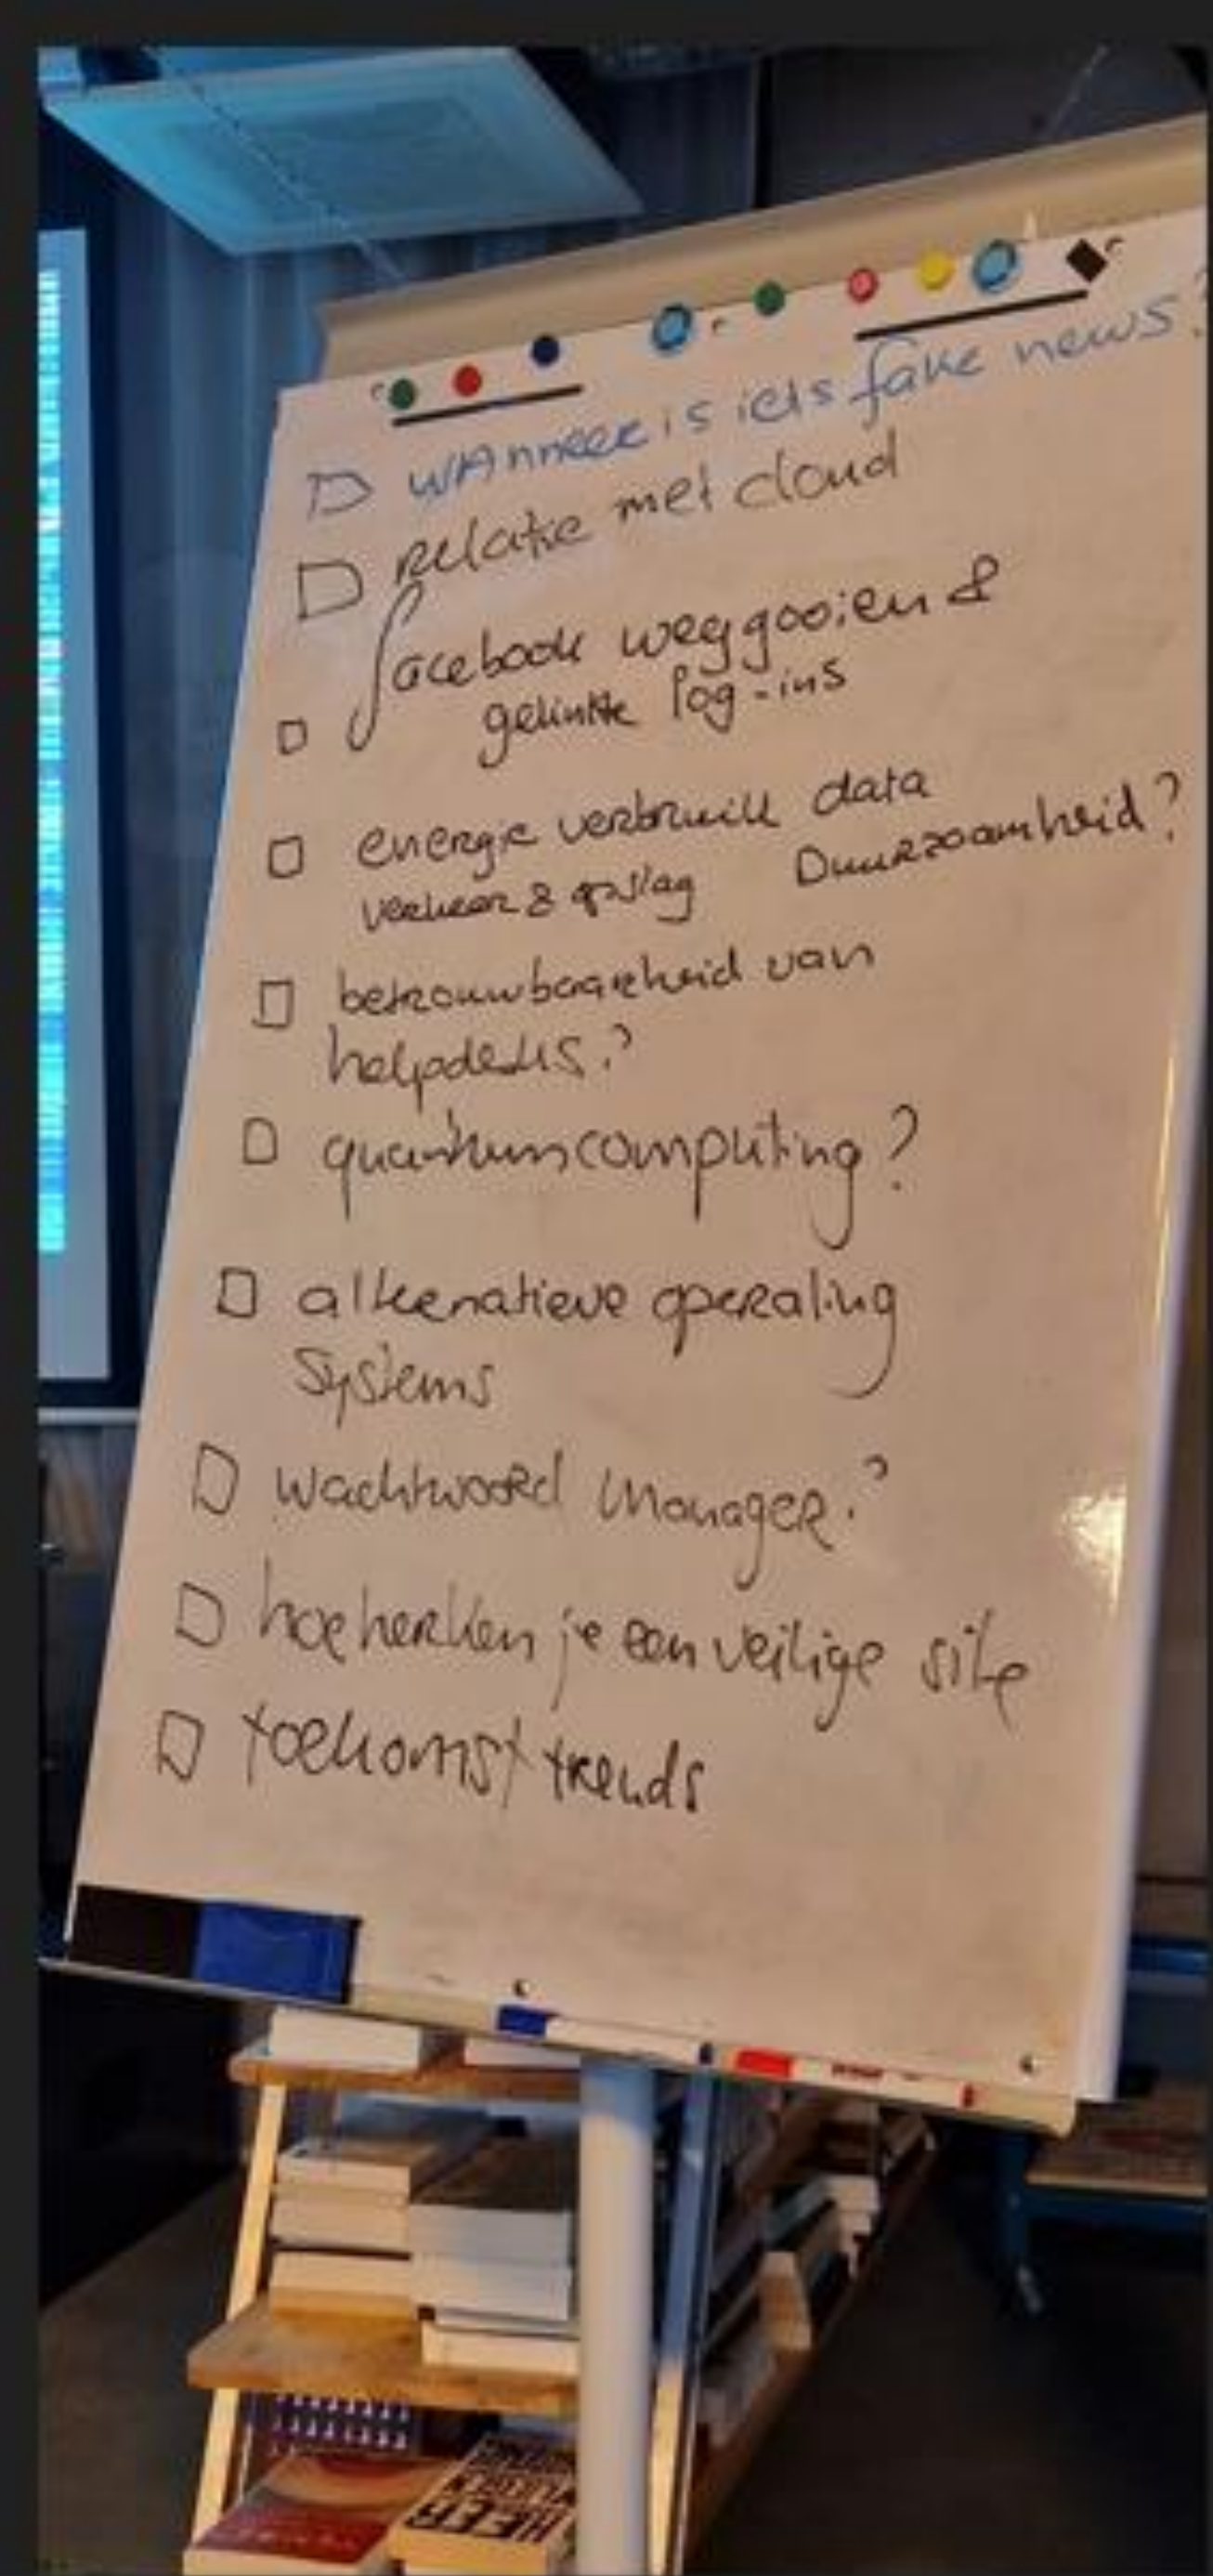 WAnneer is iets fake news?
relatie met cloud
facebook weggooien &
gelinkte log-ins
energie verbruik data
verkeer & opslag Duurzaamheid?
betrouwbaarheid van
helpdesks?
quantumcomputing?
alternatieve operating
systems
wachtwoord manager?
hoe herken je een veilige site
toekomst trends
HEER